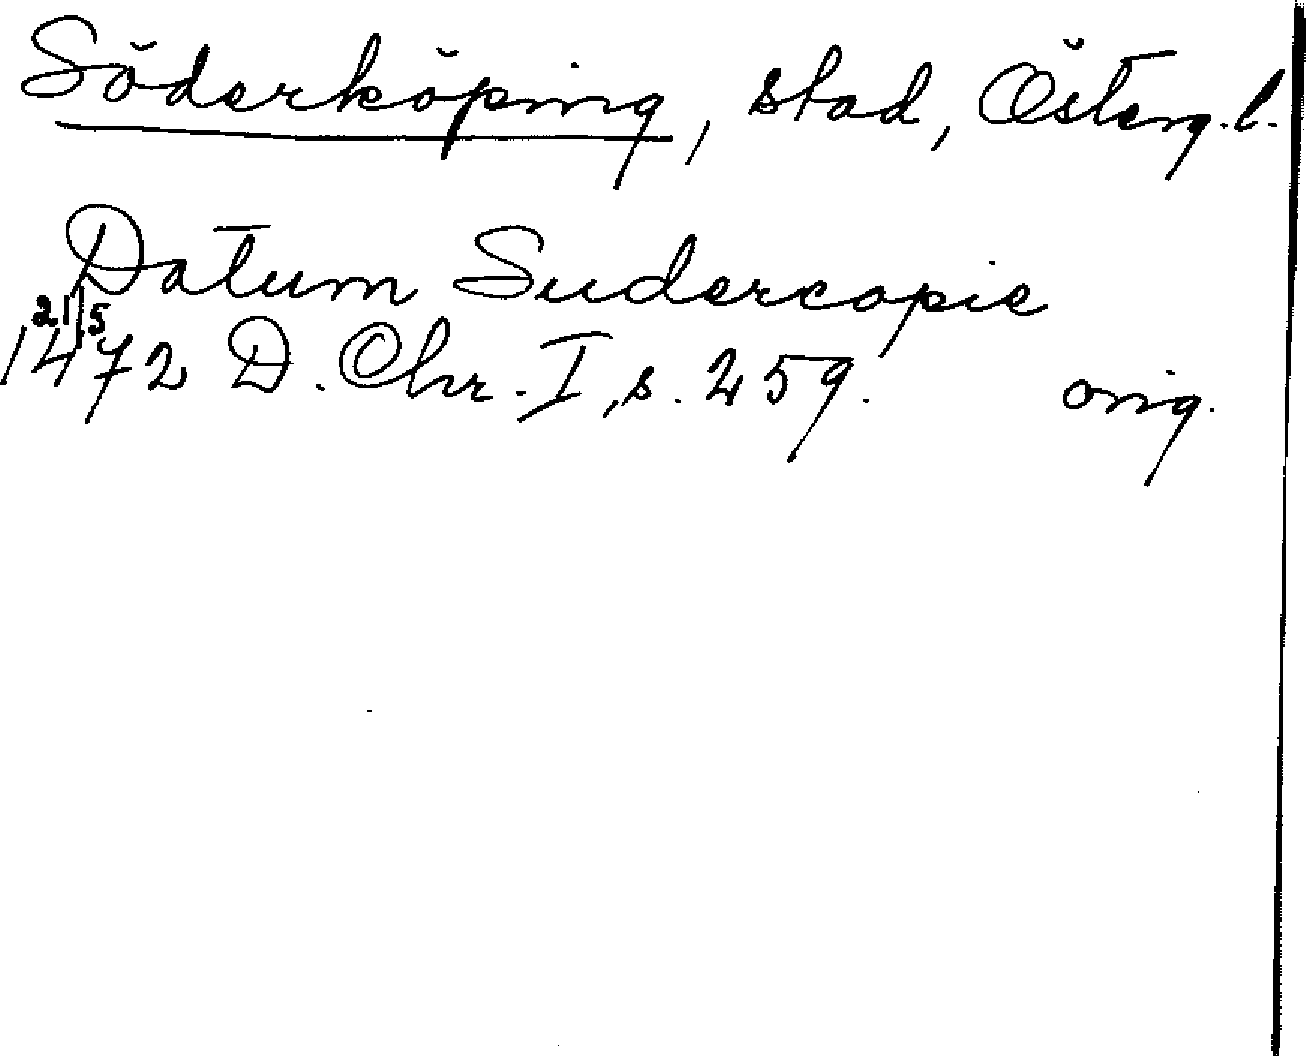 Söderköping, stad, Österg.l.
Datum Sudercopie
21/5
1472 D. Chr. I, s. 259. orig.